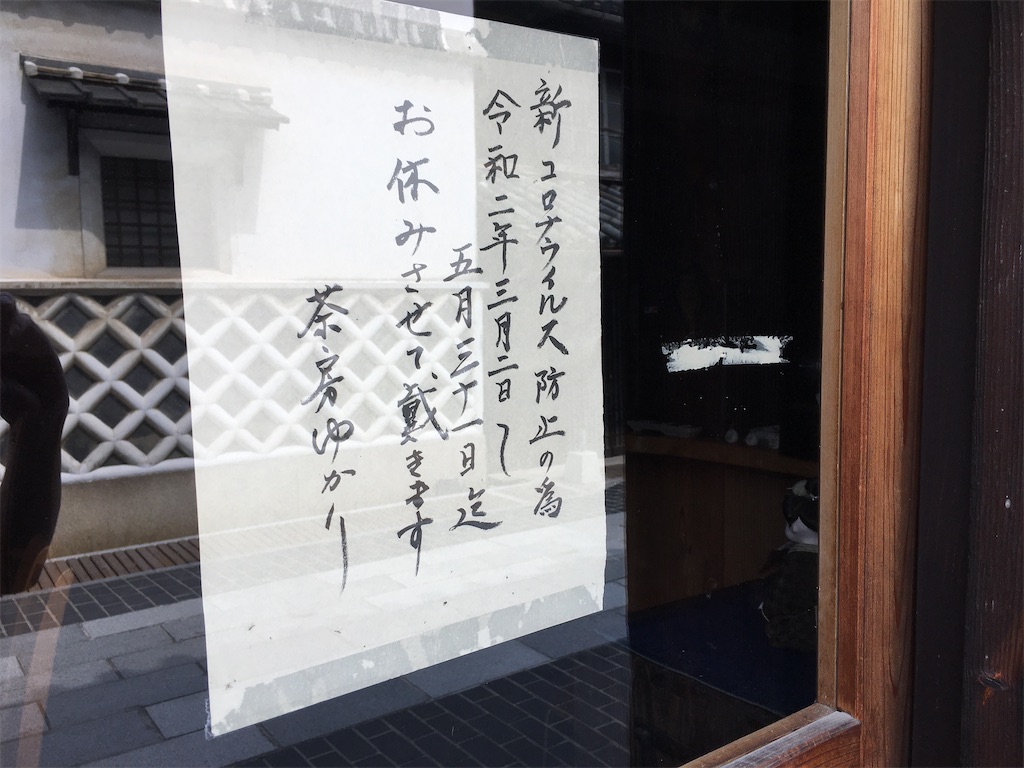 新コロナウイルス防止の為
令和二年三月二日〜
五月三十一日迄
お休みさせて戴きます
茶房ゆかり